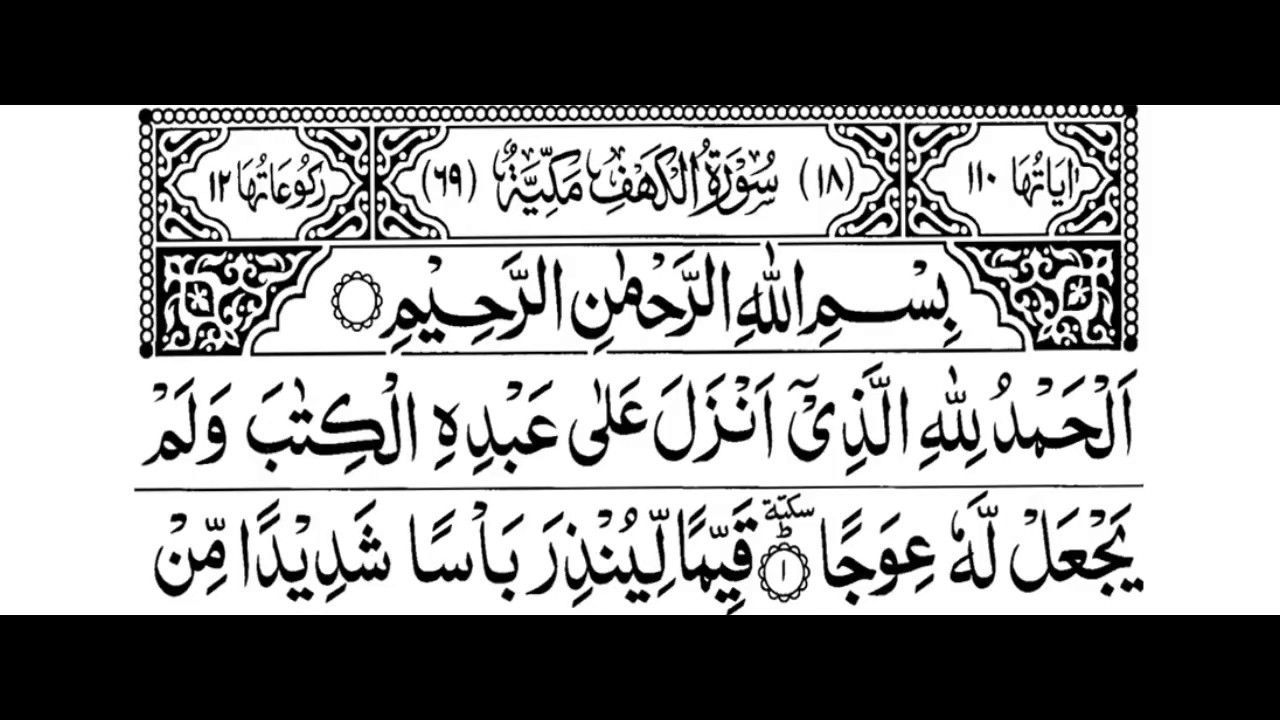 اٰيَاتُهَا ١١٠ (١٨) سُوْرَةُ الْكَهْفِ مَكِّيَّةٌ (٦٩) رُكُوْعَاتُهَا ١٢
بِسْمِ اللّٰهِ الرَّحْمٰنِ الرَّحِيْمِ
اَلْحَمْدُ لِلّٰهِ الَّذِىْۤ اَنْزَلَ عَلٰى عَبْدِهِ الْكِتٰبَ وَلَمْ
يَجْعَلْ لَّهٗ عِوَجًا ؕ سكتة ١ قَيِّمًا لِّيُنْذِرَ بَاْسًا شَدِيْدًا مِّنْ